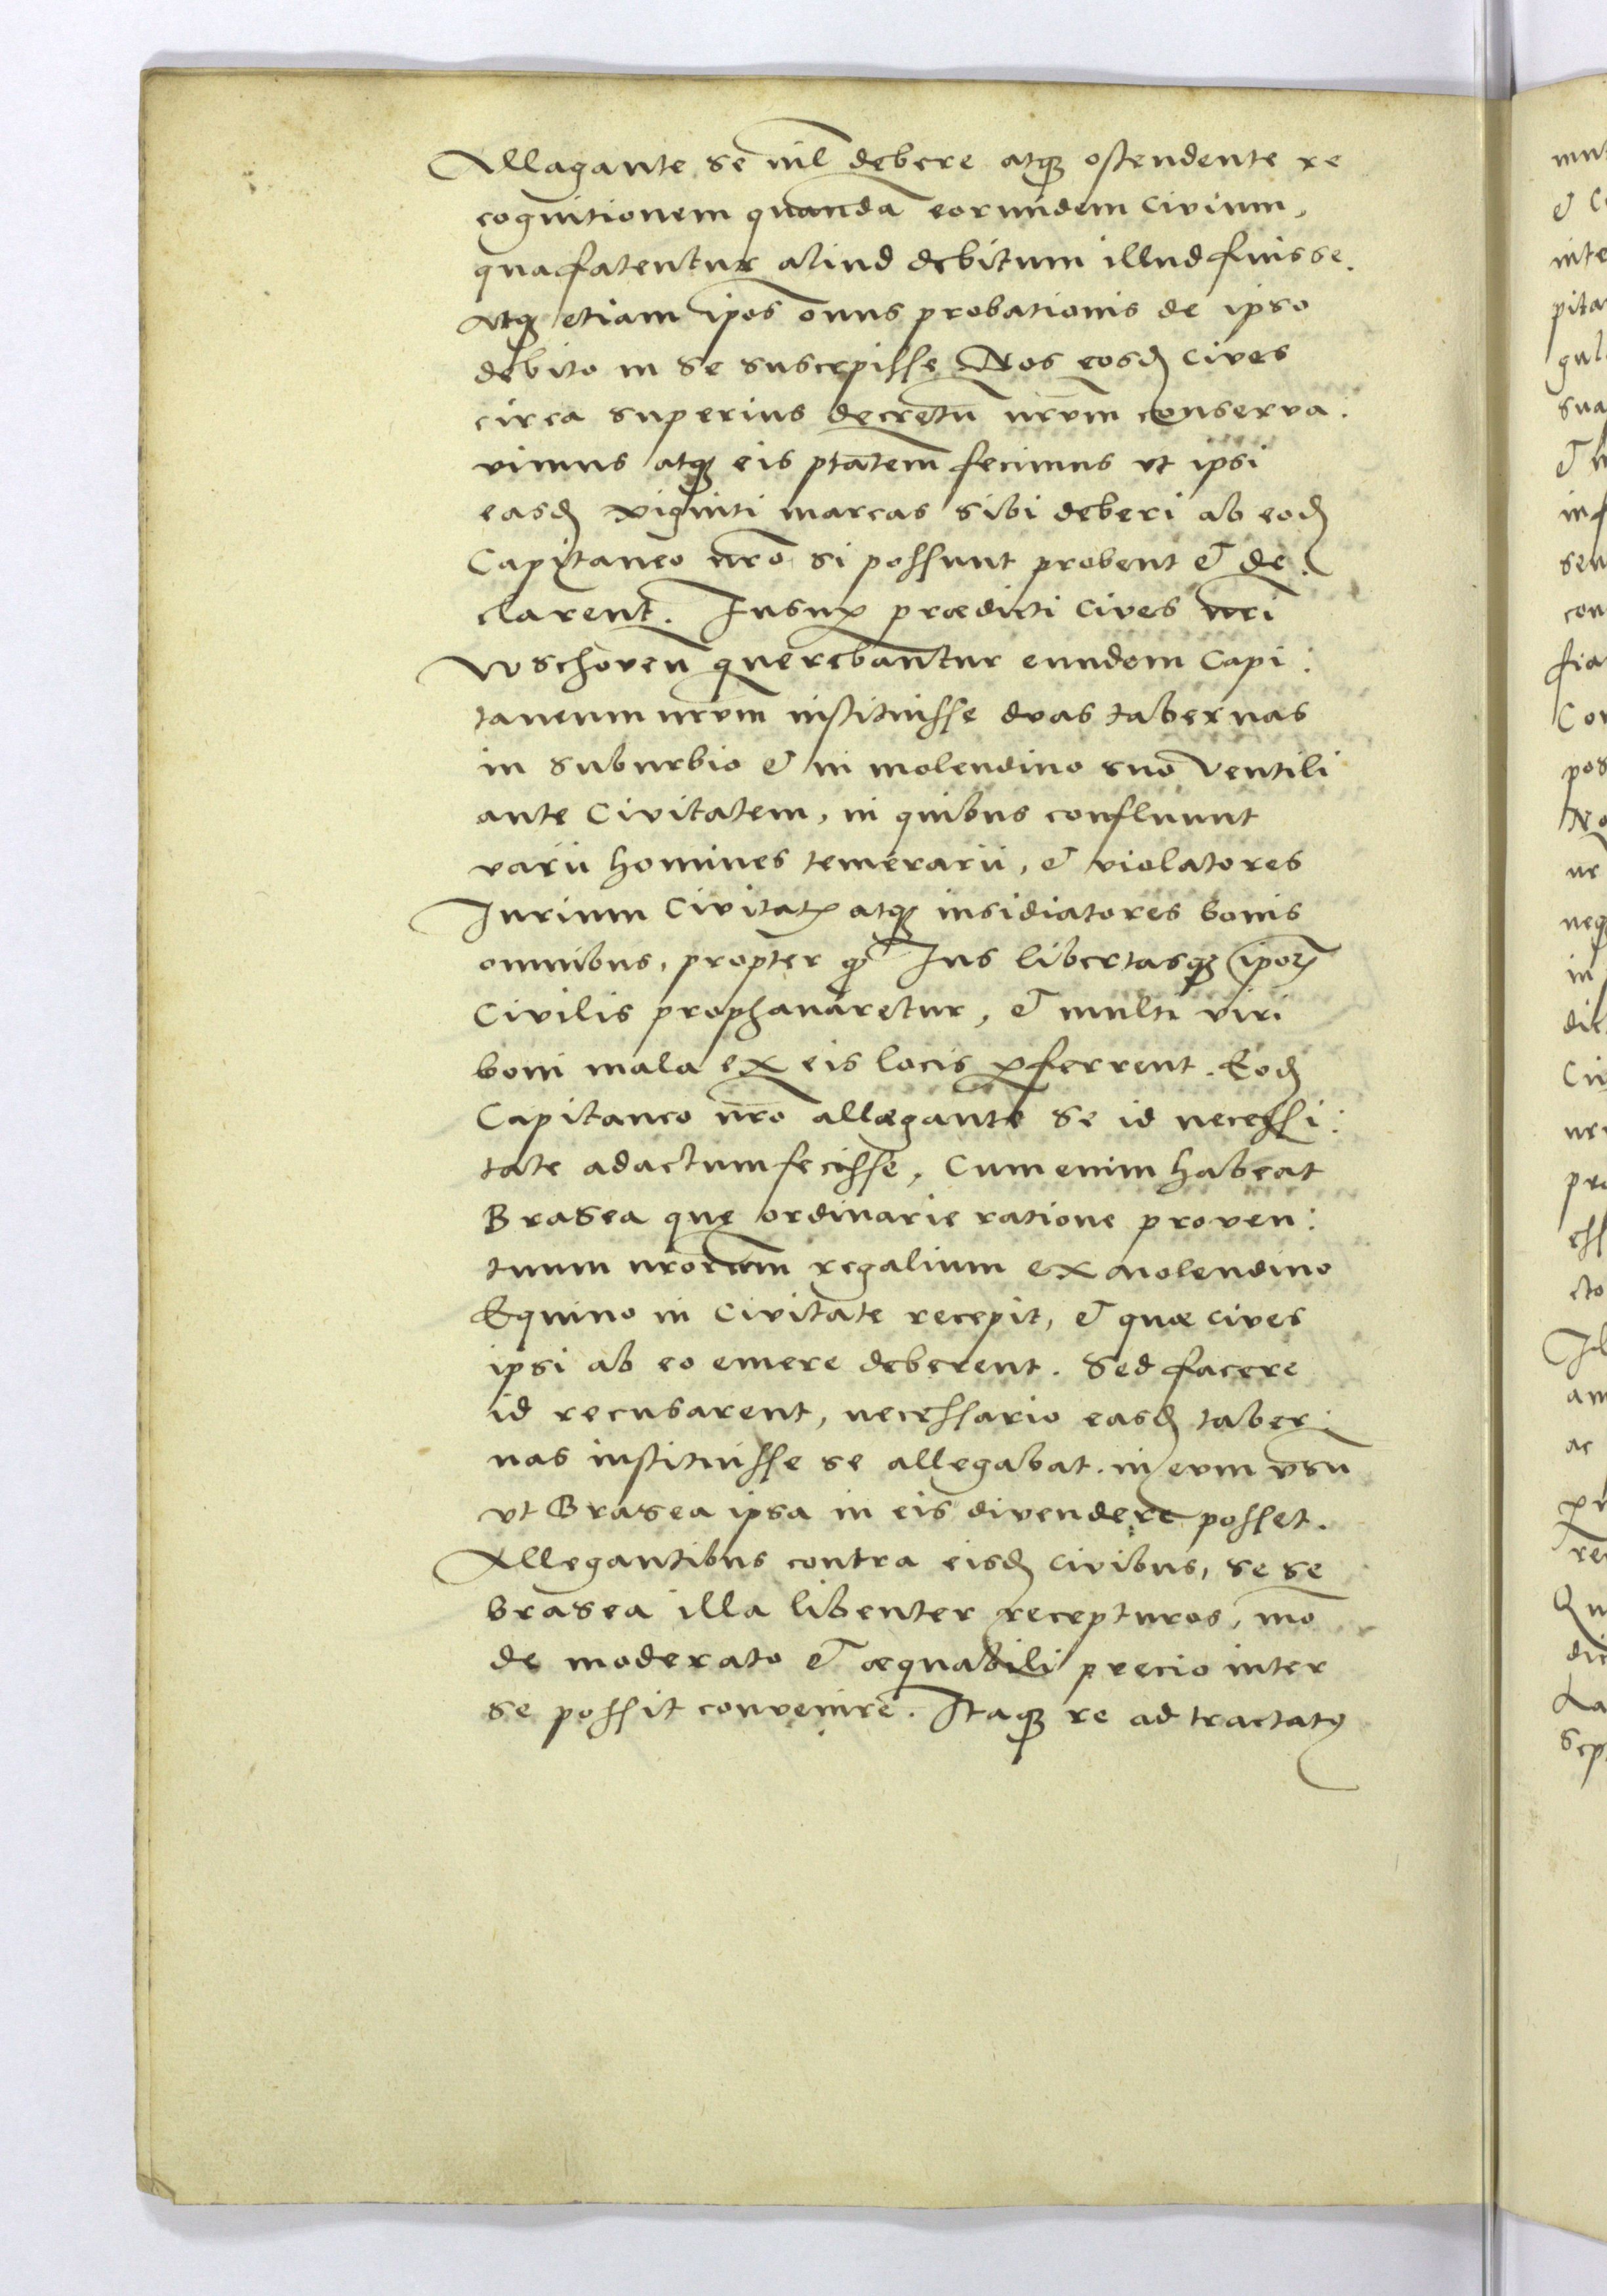 Allagante se nil debere atq₃ ostendente re
cognitionem quandā eorundem Civium,
qua fatentur aliud debitum illud fuisse.
Atq₃ etiam ipos onus probationis de ipso
debito in se suscepisse Nos eosd̄ cives
circa superius decretū nrūm conserva:
vimus atq₃ eis ptātem fecimus ut ipsi
easd̄ viginti marcas sibi deberi ab eod̄
Capitaneo nrō si possunt probent et de:
clarent. Insup̱ prædicti Cives nrī
Wschoven̄ querebantur eundem Capi:
taneum nrūm instituisse duas tabernas
in suburbio et in molendino suo Ventili
ante Civitatem, in quibus confluunt
varii homines temerarii, et violatores
Jurium Civitatꝭ atq₃ insidiatores bonis
omnibus, propter qđ Jus libertasq₃ ipoꝝ
Civilis prophanaretur, et multi viri
boni mala ex eis locis p̱ferrent. Eod̄
Capitaneo nrō allegante se id necessi:
tate adactum fecisse, Cum enim habeat
Brasea quę ordinarie ratione proven:
tuum nrōrum regalium ex molendino
Equino in Civitate recepit, et quæ cives
ipsi ab eo emere deberent. Sed facere
id recusarent, necessario easd̄ taber:
nas instituisse se allegabat. in eum usū
ut Brasea ipsa in eis divendere posset.
Allegantibus contra eisd̄ Civibus, se se
brasea illa libenter recepturos, mō
de moderato et æquabili precio inter
se possit convenire. Itaq₃ re ad tractatꝯ